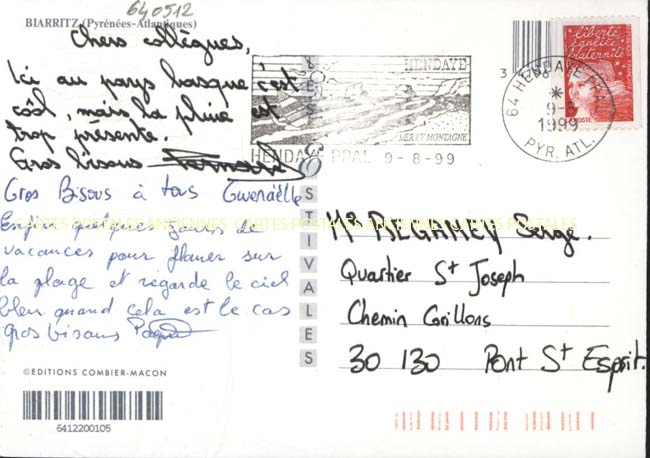 640512
BIARRITZ (Pyrénées-Atlantiques)
Chers collègues,
Ici au pays basque c'est
côol, mais la pluie est
trop présente.
Gros bisous
Gros Bisous à tous Gwenaëlle
Enfin quelques jours de
vacances pour flaner sur
la plage et regarde le ciel
bleu quand cela est le cas
Gros bisous
©EDITIONS COMBIER-MACON
6412200105
ESTIVALES
HENDAYE
MER ET MONTAGNE
HENDAYE PPAL 9-8-99
64 HENDAYE PPAL
9-8
1999
PYR. ATL.
liberté
égalité
fraternité
LA POSTE
Mr Serge.
Quartier St Joseph
Chemin Carillons
30 130 Pont St Esprit.
CARTES POSTALES ANCIENNES CARTES POSTALES